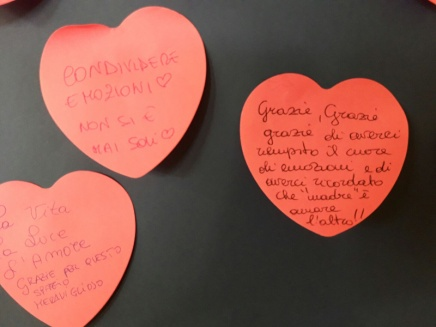 CONDIVIDERE
EMOZIONI ♡
NON SI È
MAI SOLI ♡
Grazie, Grazie
grazie di averci
riempito il cuore
di emozioni e di
averci ricordato
che "madre" è
amare
l'altro!!
Vita
Luce
L'AMORE
GRAZIE PER QUESTO
MERAVIGLIOSO